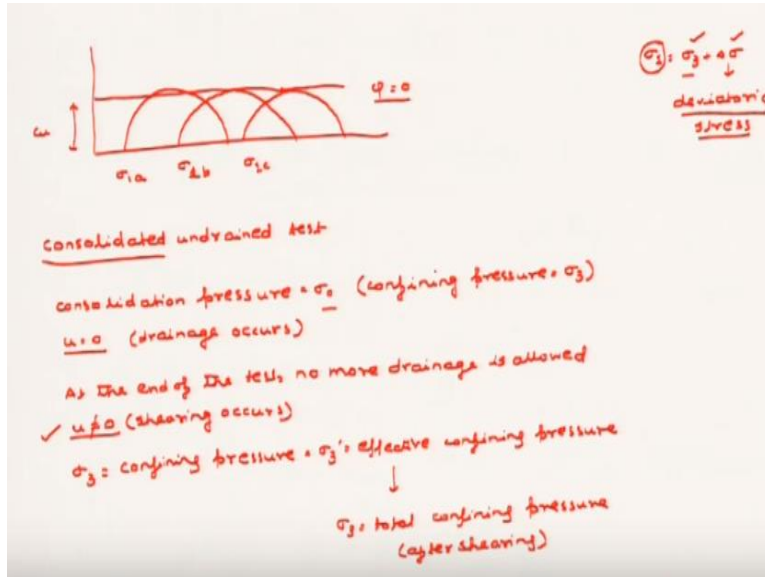 σ₁ = σ₃ + Δσ
deviatoric
stress
φ = 0
cu
σ1a σ1b σ1c
consolidated undrained test
consolidation pressure = σ₀ (confining pressure = σ₃)
u = 0 (drainage occurs)
At the end of the test, no more drainage is allowed
✓ u ≠ 0 (shearing occurs)
σ₃ = confining pressure = σ₃' = effective confining pressure
↓
σ₃ = total confining pressure
(after shearing)